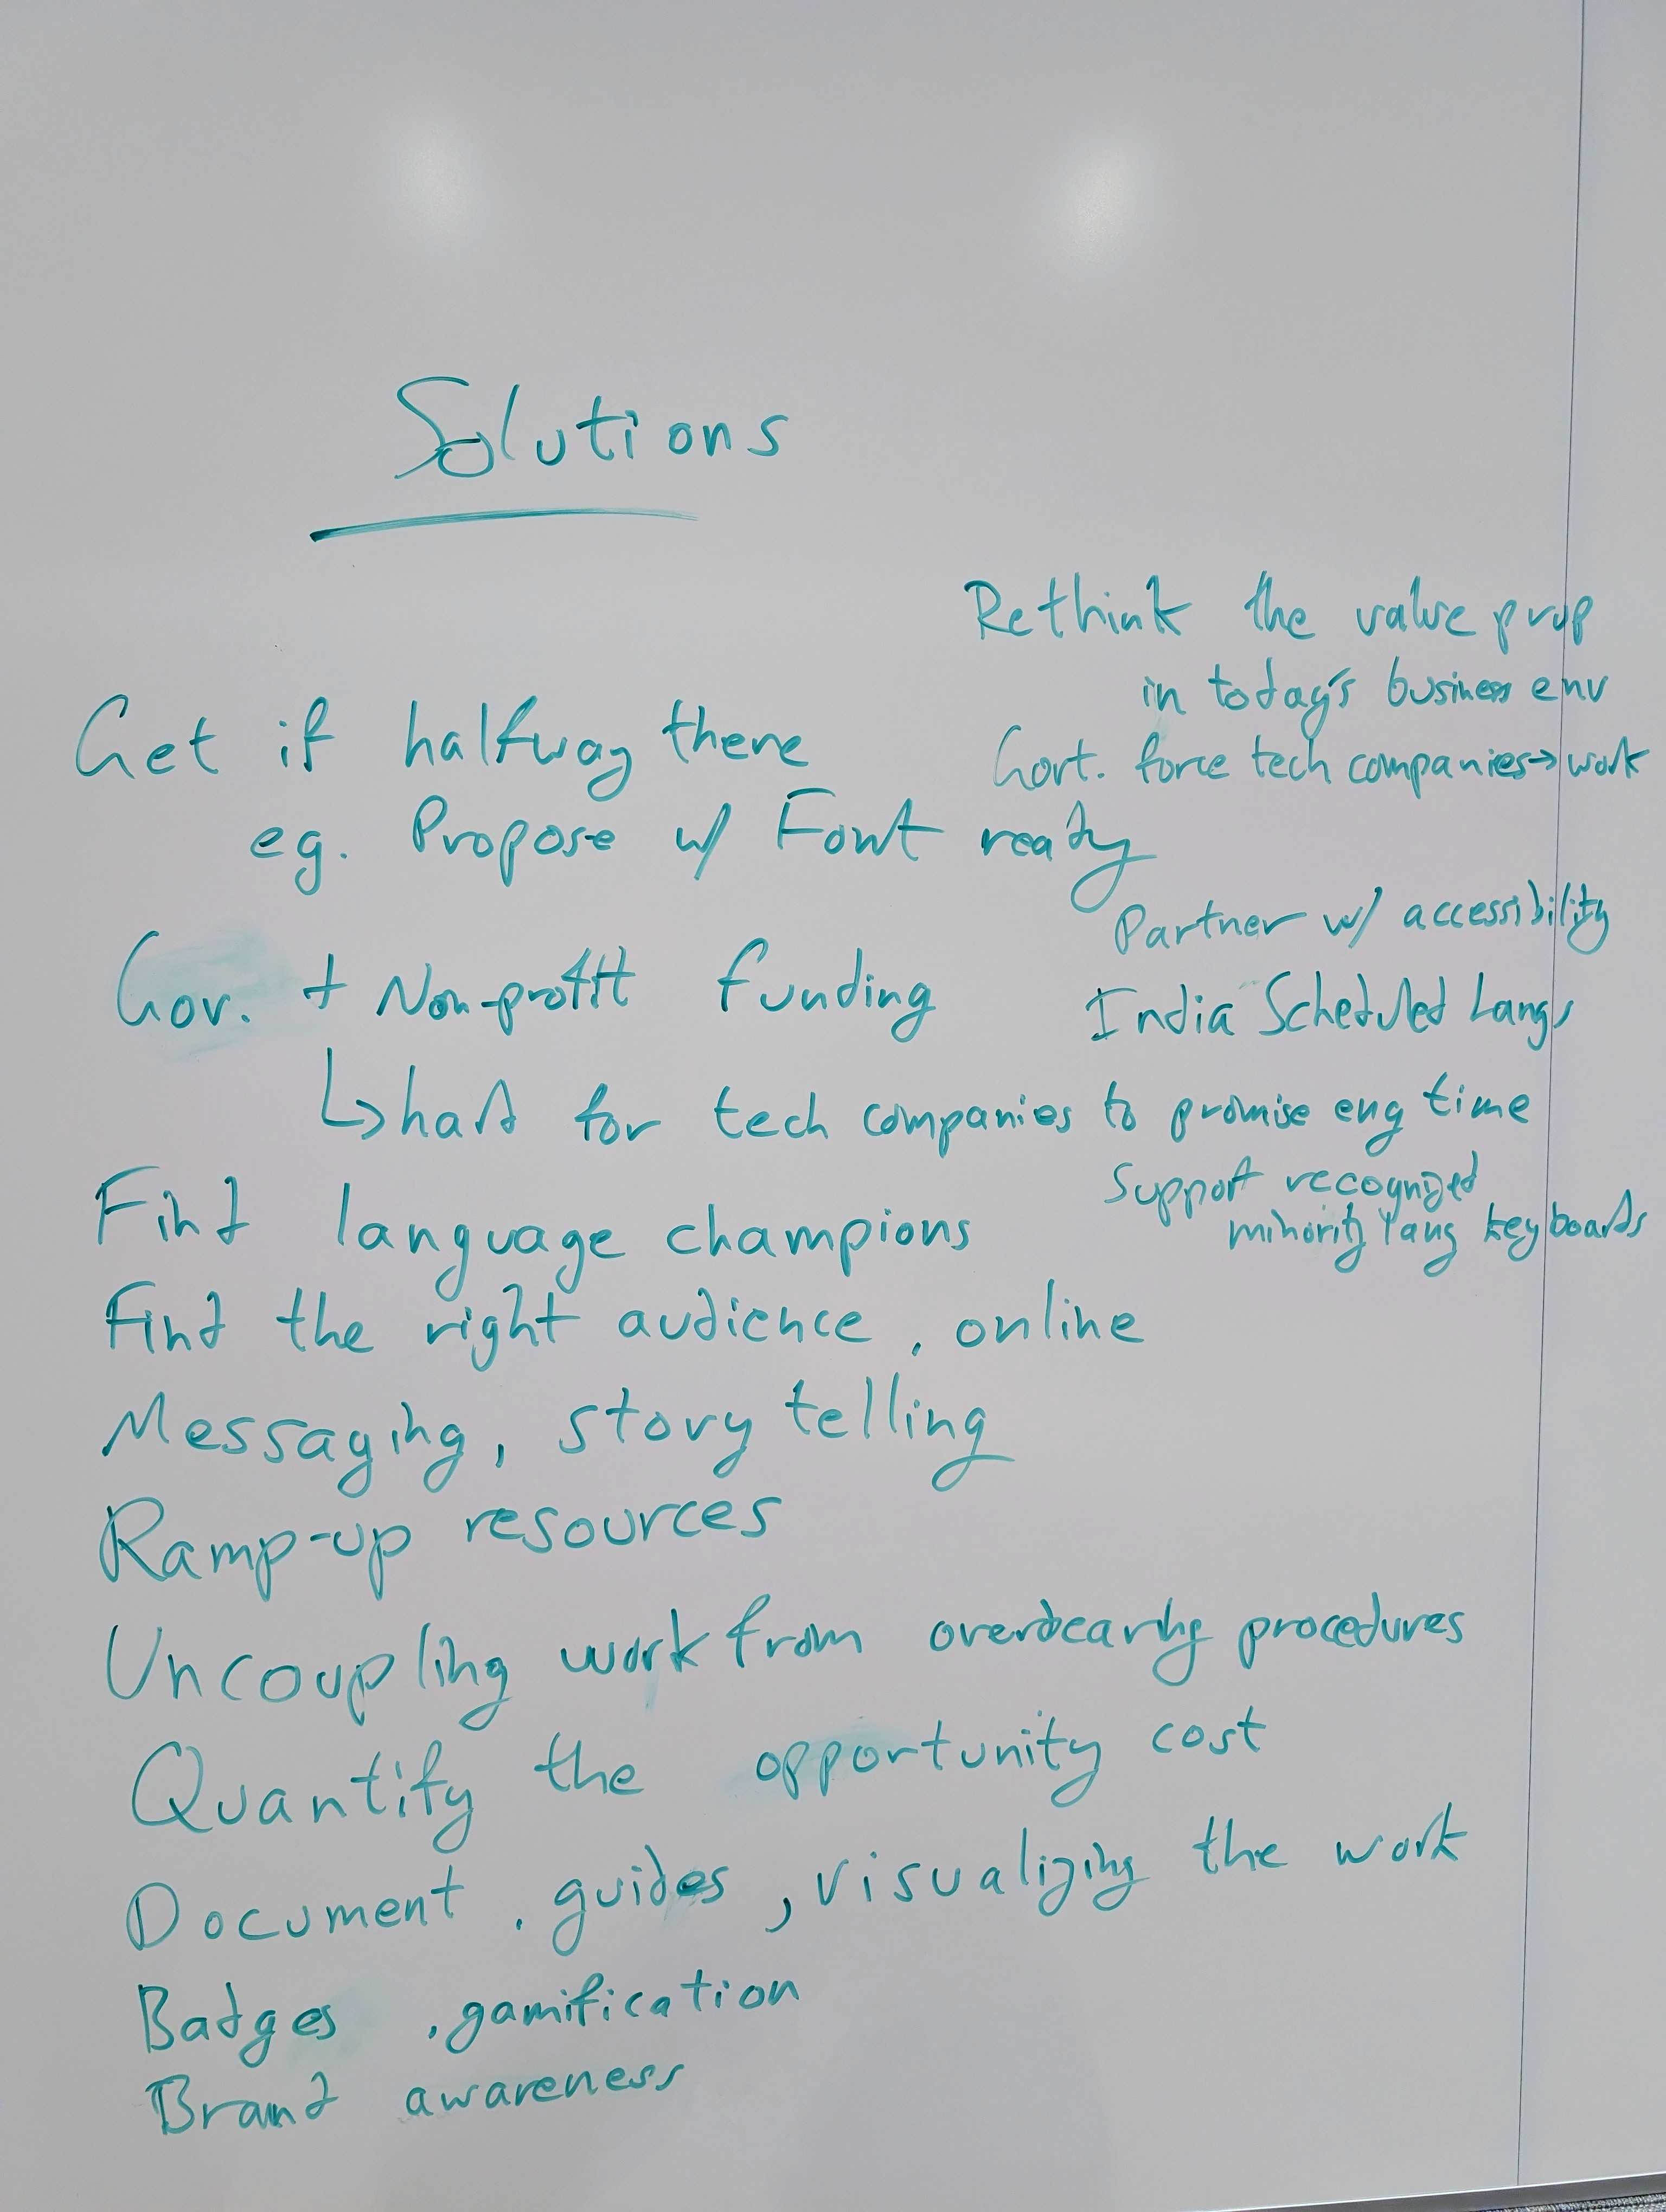 Solutions
Rethink the value prop
in today's business env
Get if halfway there
Govt. force tech companies→work
eg. Propose w/ Font ready
Partner w/ accessibility
Gov. + Non-profit funding
India Scheduled Langs
↳hard for tech companies to promise eng time
Support recognized
minority lang keyboards
Find language champions
Find the right audience, online
Messaging, story telling
Ramp-up resources
Uncoupling work from overbearing procedures
Quantify the opportunity cost
Document, guides, visualizing the work
Badges, gamification
Brand awareness